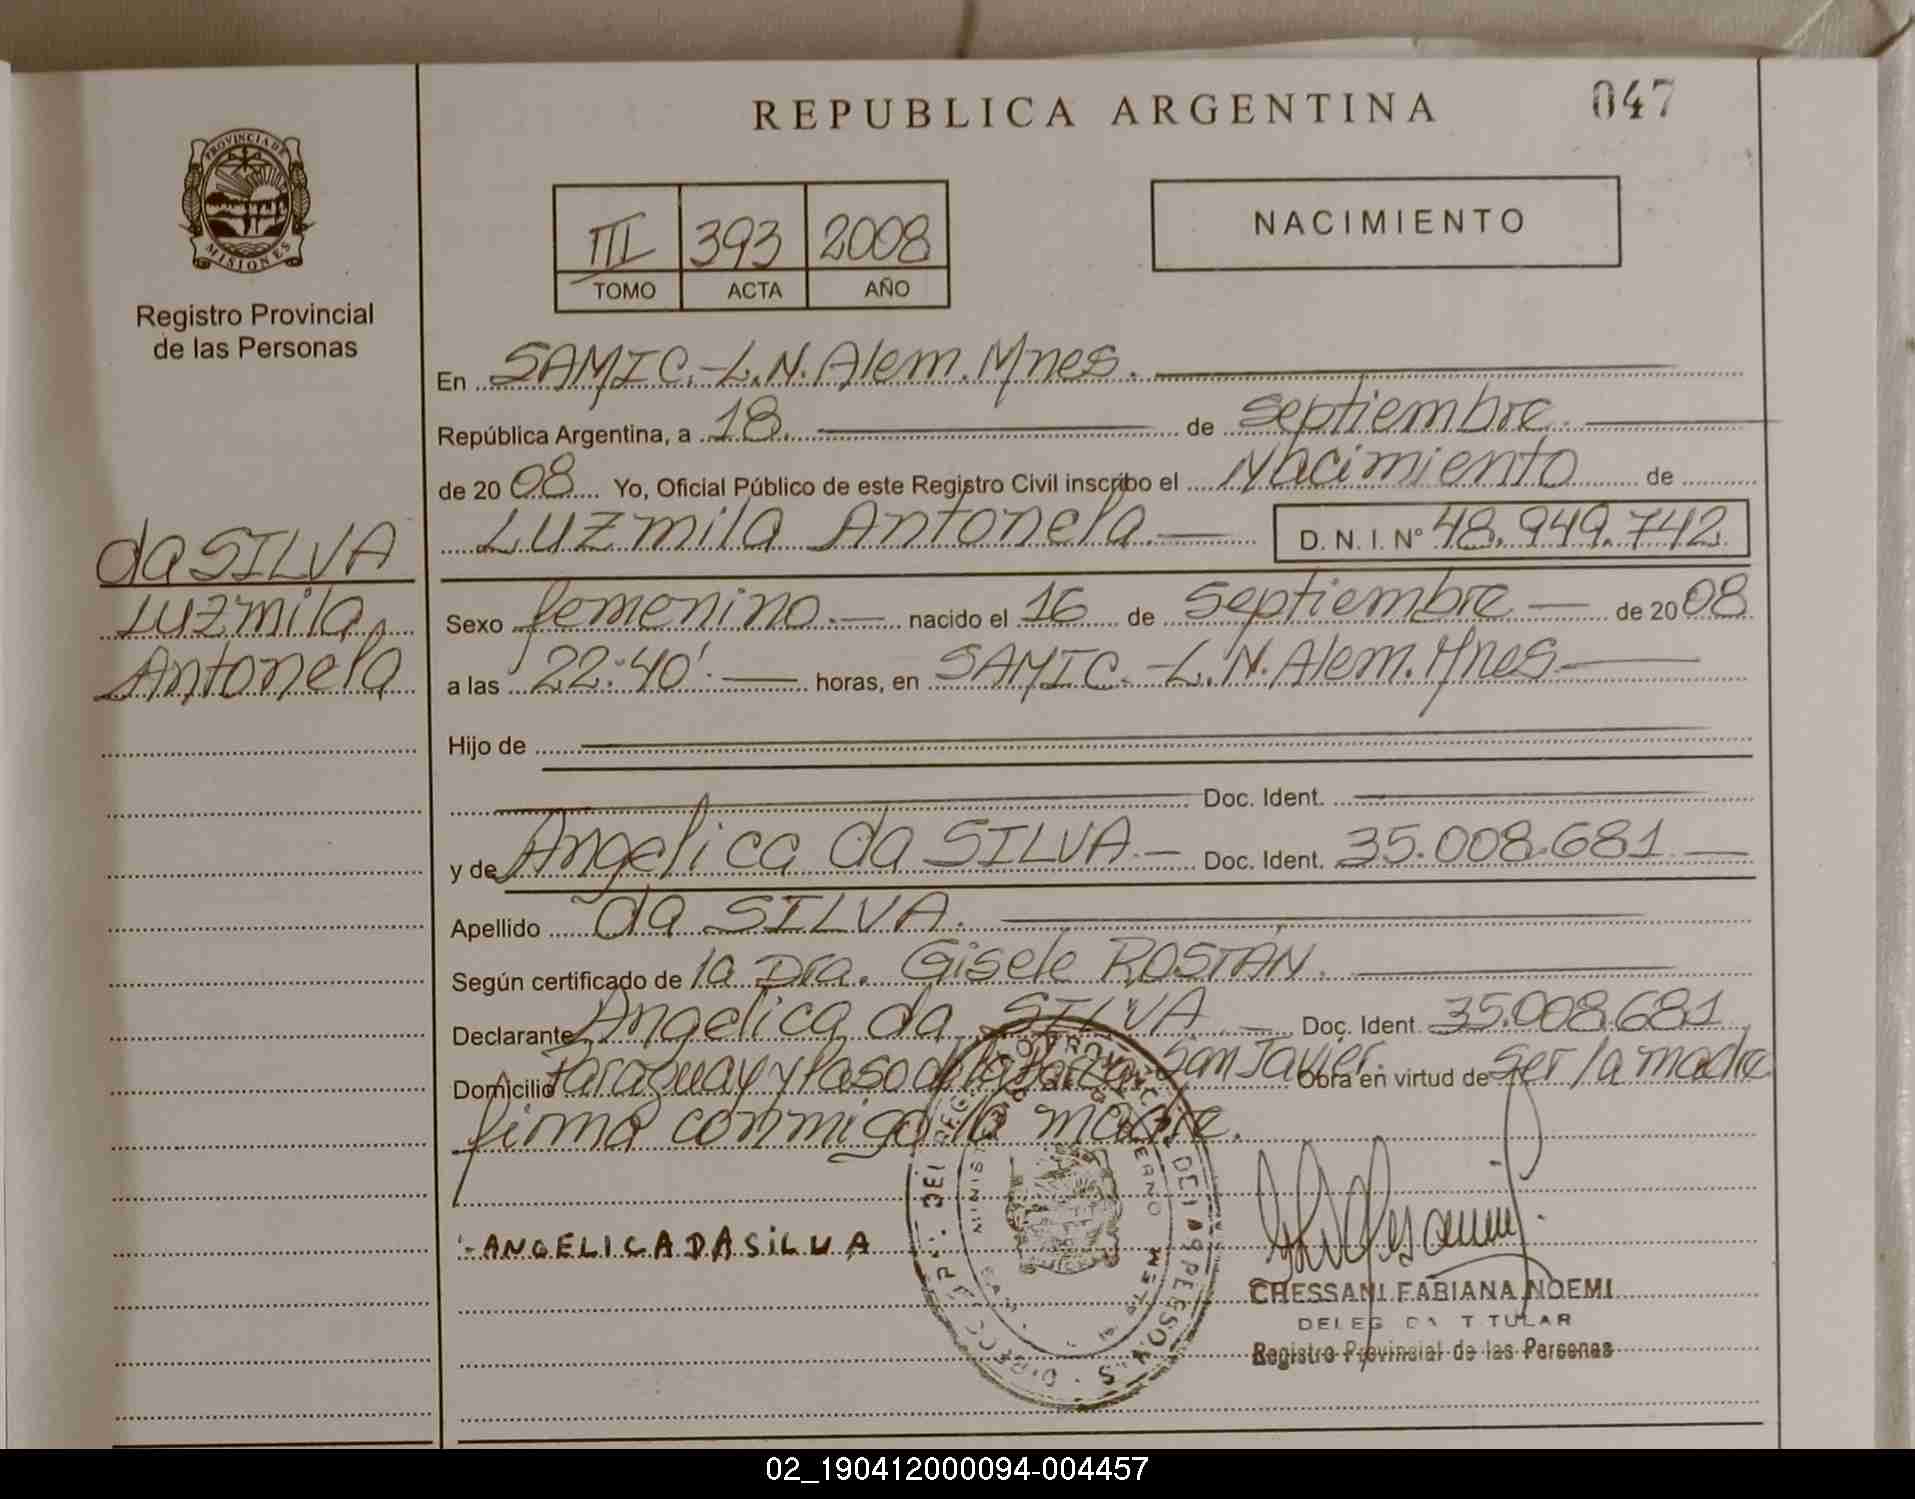 REPUBLICA ARGENTINA
047
PROVINCIA DE
MISIONES
Registro Provincial
de las Personas
III 393 2008
TOMO ACTA AÑO
NACIMIENTO
En SAMIC.-L.N.Alem.Mnes.
República Argentina, a 18. de septiembre.
de 2008 Yo, Oficial Público de este Registro Civil inscribo el Nacimiento de
Luzmila Antonela.— D. N. I. Nº 48.949.742
da SILVA
Luzmila
Antonela
Sexo femenino.— nacido el 16 de Septiembre — de 2008
a las 22:40'.— horas, en SAMIC.-L.N.Alem.Mnes—
Hijo de
Doc. Ident.
y de Angelica da SILVA.— Doc. Ident. 35.008.681 —
Apellido da SILVA.
Según certificado de la Dra. Gisele ROSTÁN.
Declarante Angelica da SILVA — Doc. Ident. 35.008.681
Domicilio Paraguay y Paso de la San Javier. Obra en virtud de ser la madre
firma conmigo la madre.
ANGELICA DA SiLVA
CHESSANI FABIANA NOEMI
TITULAR
Registro Provincial de las Personas
02_190412000094-004457